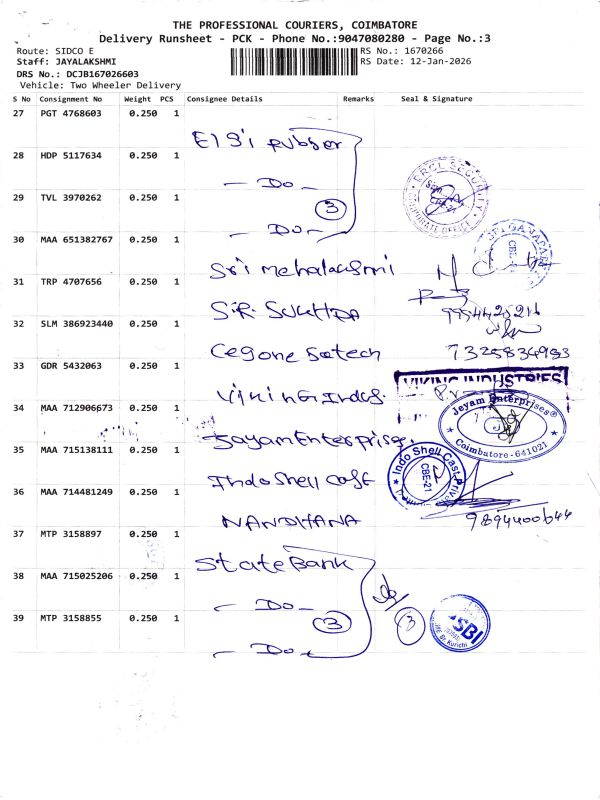 THE PROFESSIONAL COURIERS, COIMBATORE
Delivery Runsheet - PCK - Phone No.:9047080280 - Page No.:3
Route: SIDCO E RS No.: 1670266
Staff: JAYALAKSHMI RS Date: 12-Jan-2026
DRS No.: DCJB167026603
Vehicle: Two Wheeler Delivery
S No Consignment No Weight PCS Consignee Details Remarks Seal & Signature
27 PGT 4768603 0.250 1
Elgi rubber
28 HDP 5117634 0.250 1
- Do -
29 TVL 3970262 0.250 1
3
- Do -
CORPORATE OFFICE
30 MAA 651382767 0.250 1
Sri Mahalakshmi
31 TRP 4707656 0.250 1
SIR. SUKHDA 9954425216
32 SLM 386923440 0.250 1
7325834983
33 GDR 5432063 0.250 1
VIKING INDUSTRIES
Viking Indus.
34 MAA 712906673 0.250 1
Jeyam Enterprises
Coimbatore-641021
Jayam Enterprise.
35 MAA 715138111 0.250 1
Indo Shell Cast Private
CBE-21
Indo Shell cast
36 MAA 714481249 0.250 1
NANDHANA 9894400644
37 MTP 3158897 0.250 1
State Bank
38 MAA 715025206 0.250 1
- Do -
39 MTP 3158855 0.250 1
3 3
SBI
- Do -